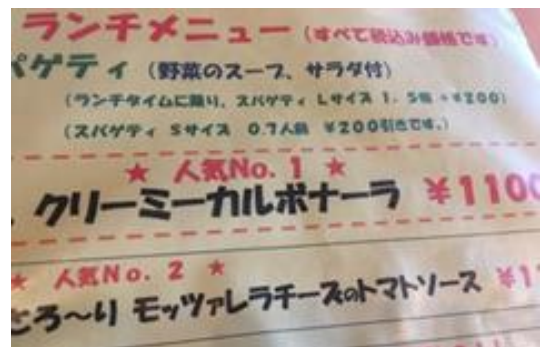 ランチメニュー (すべて税込み価格です)
パゲティ (野菜のスープ、サラダ付)
(ランチタイムに限り、スパゲティ Lサイズ 1.5倍 +¥200)
(スパゲティ Sサイズ 0.7人前 ¥200引きです。)
★ 人気No.1 ★
クリーミーカルボナーラ ¥1100
★ 人気No.2 ★
とろ~り モッツァレラチーズのトマトソース ¥1